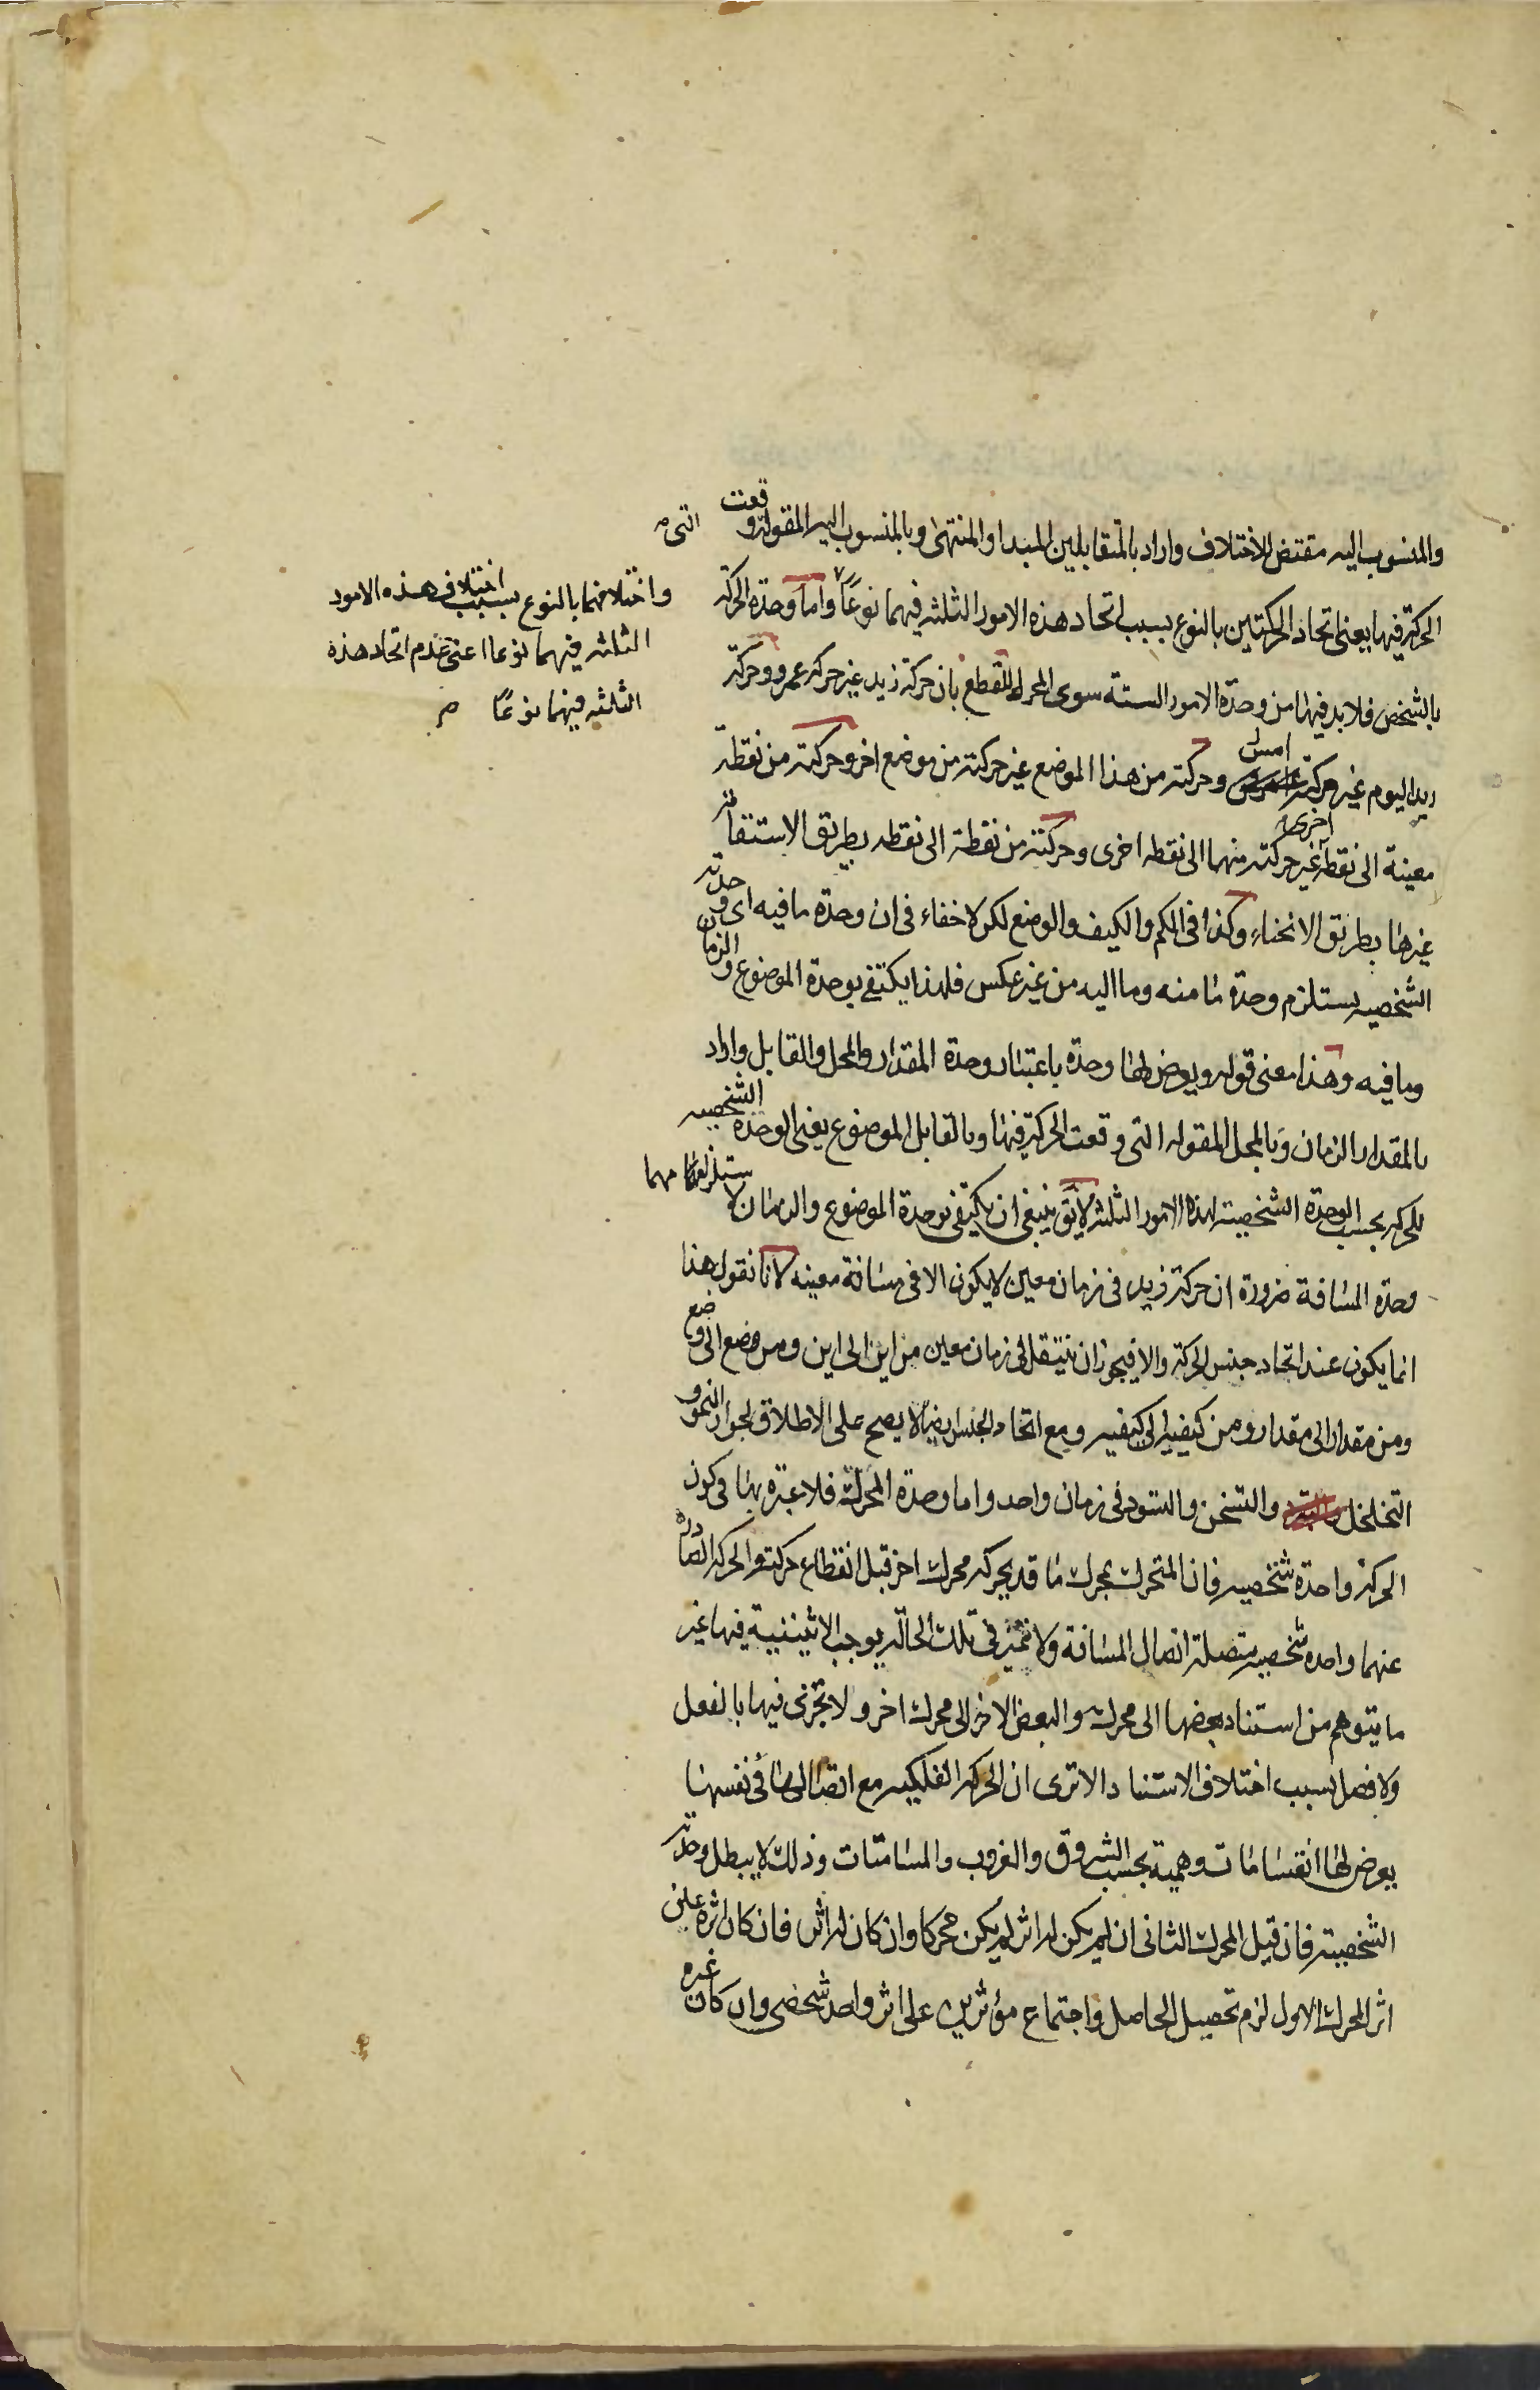 والمنسوب اليه مقتض للاختلاف واراد بالمتقابلين المبدا والمنتهى وبالمنسوب اليه المقولة وقعت
التى
الحركة فيها يعنى اتحاد الحركتين بالنوع بسبب اتحاد هذه الامور الثلثه فيهما نوعًا واما وحدة الحركة
واختلافهما بالنوع بسبب اختلاف هذه الامور
الثلثه فيهما نوعا اعنى عدم اتحاد هذه
الثلثه فيهما نوعًا
بالشخص فلا بد فيها من وحدة الامور الستة سوى المحرك للقطع بان حركة زيد غير حركه عمرو وحركة
زيد اليوم غير حركته امس وحركته من هذا الموضع غير حركته من موضع اخر وحركته من نقطة
معينة الى نقطة غير حركته منهما الى نقطه اخرى وحركته من نقطة الى نقطه بطريق الاستقامة
اخرى
غيرها بطريق الانحناء وكذا فى الكم والكيف والوضع لكن لا خفاء فى ان وحدة ما فيه اى وحدته
الشخصيه يستلزم وحدة ما منه وما اليه من غير عكس فلهذا يكتفى بوحدة الموضوع والزمان
وما فيه وهذا معنى قوله ويعرض لها وحدة باعتبار وحدة المقدار والمحل والقابل واراد
بالمقدار الزمان وبالمحل المقوله التى وقعت الحركة فيها وبالقابل الموضوع يعنى الوحدة الشخصيه
للحركه بحسب الوحدة الشخصية لهذه الامور الثلثه لا يق ينبغى ان يكتفى بوحدة الموضوع والزمان لاستلزامهما
وحدة المسافة ضرورة ان حركة زيد فى زمان معين لا يكون الا فى مسافة معينه لانا نقول هذا
انما يكون عند اتحاد جنس الحركة والا فيجوز ان ينتقل فى زمان معين من اين الى اين ومن وضع الى وضع
ومن مقدار الى مقدار ومن كيفيه الى كيفيه ومع اتحاد الجنس ايضا لا يصح على الاطلاق لجواز النمو و
التخلخل والتسخن والتسود فى زمان واحد واما وحدة المحرك فلا عبرة بها فى كون
الحركة واحدة شخصيه فان المتحرك بمحرك ما قد يحركه محرك اخر قبل انقطاع حركته والحركه الصادرة
عنهما واحده شخصيه متصلة اتصال المسافة ولا تميز فى تلك الحالة يوجب الاثنينية فيها غير
ما يتوهم من استناد بعضها الى محرك والبعض الاخر الى محرك اخر ولا تجزى فيها بالفعل
ولا فصل بسبب اختلاف الاستناد الا ترى ان الحركه الفلكيه مع اتصالها فى نفسها
يعرض لها انقسامات وهمية بحسب الشروق والغروب والمسامتات وذلك لا يبطل وحدته
الشخصية فان قيل المحرك الثانى ان لم يكن له اثر لم يكن محركا وان كان له اثر فان كان اثره عين
اثر المحرك الاول لزم تحصيل الحاصل واجتماع مؤثرين على اثر واحد شخصى وان كان غيره